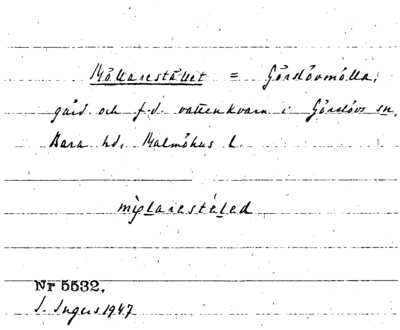 Möllarestället = Görslövmölla,
gård och f.d. vattenkvarn i Görslövs sn,
Bara hd, Malmöhus l
Nr 5532.
S. Ingers 1947